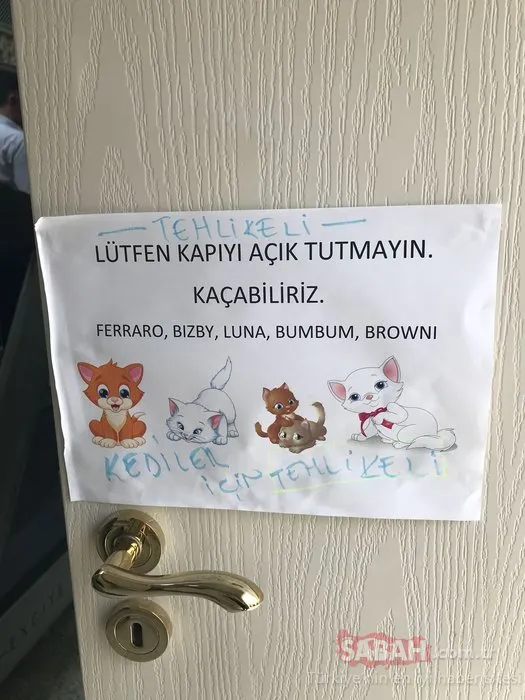 — TEHLİKELİ —
LÜTFEN KAPIYI AÇIK TUTMAYIN.
KAÇABİLİRİZ.
FERRARO, BIZBY, LUNA, BUMBUM, BROWNI
KEDİLER
İÇİN TEHLİKELİ
SABAH.com.tr
Türkiye'nin en iyi haber sitesi